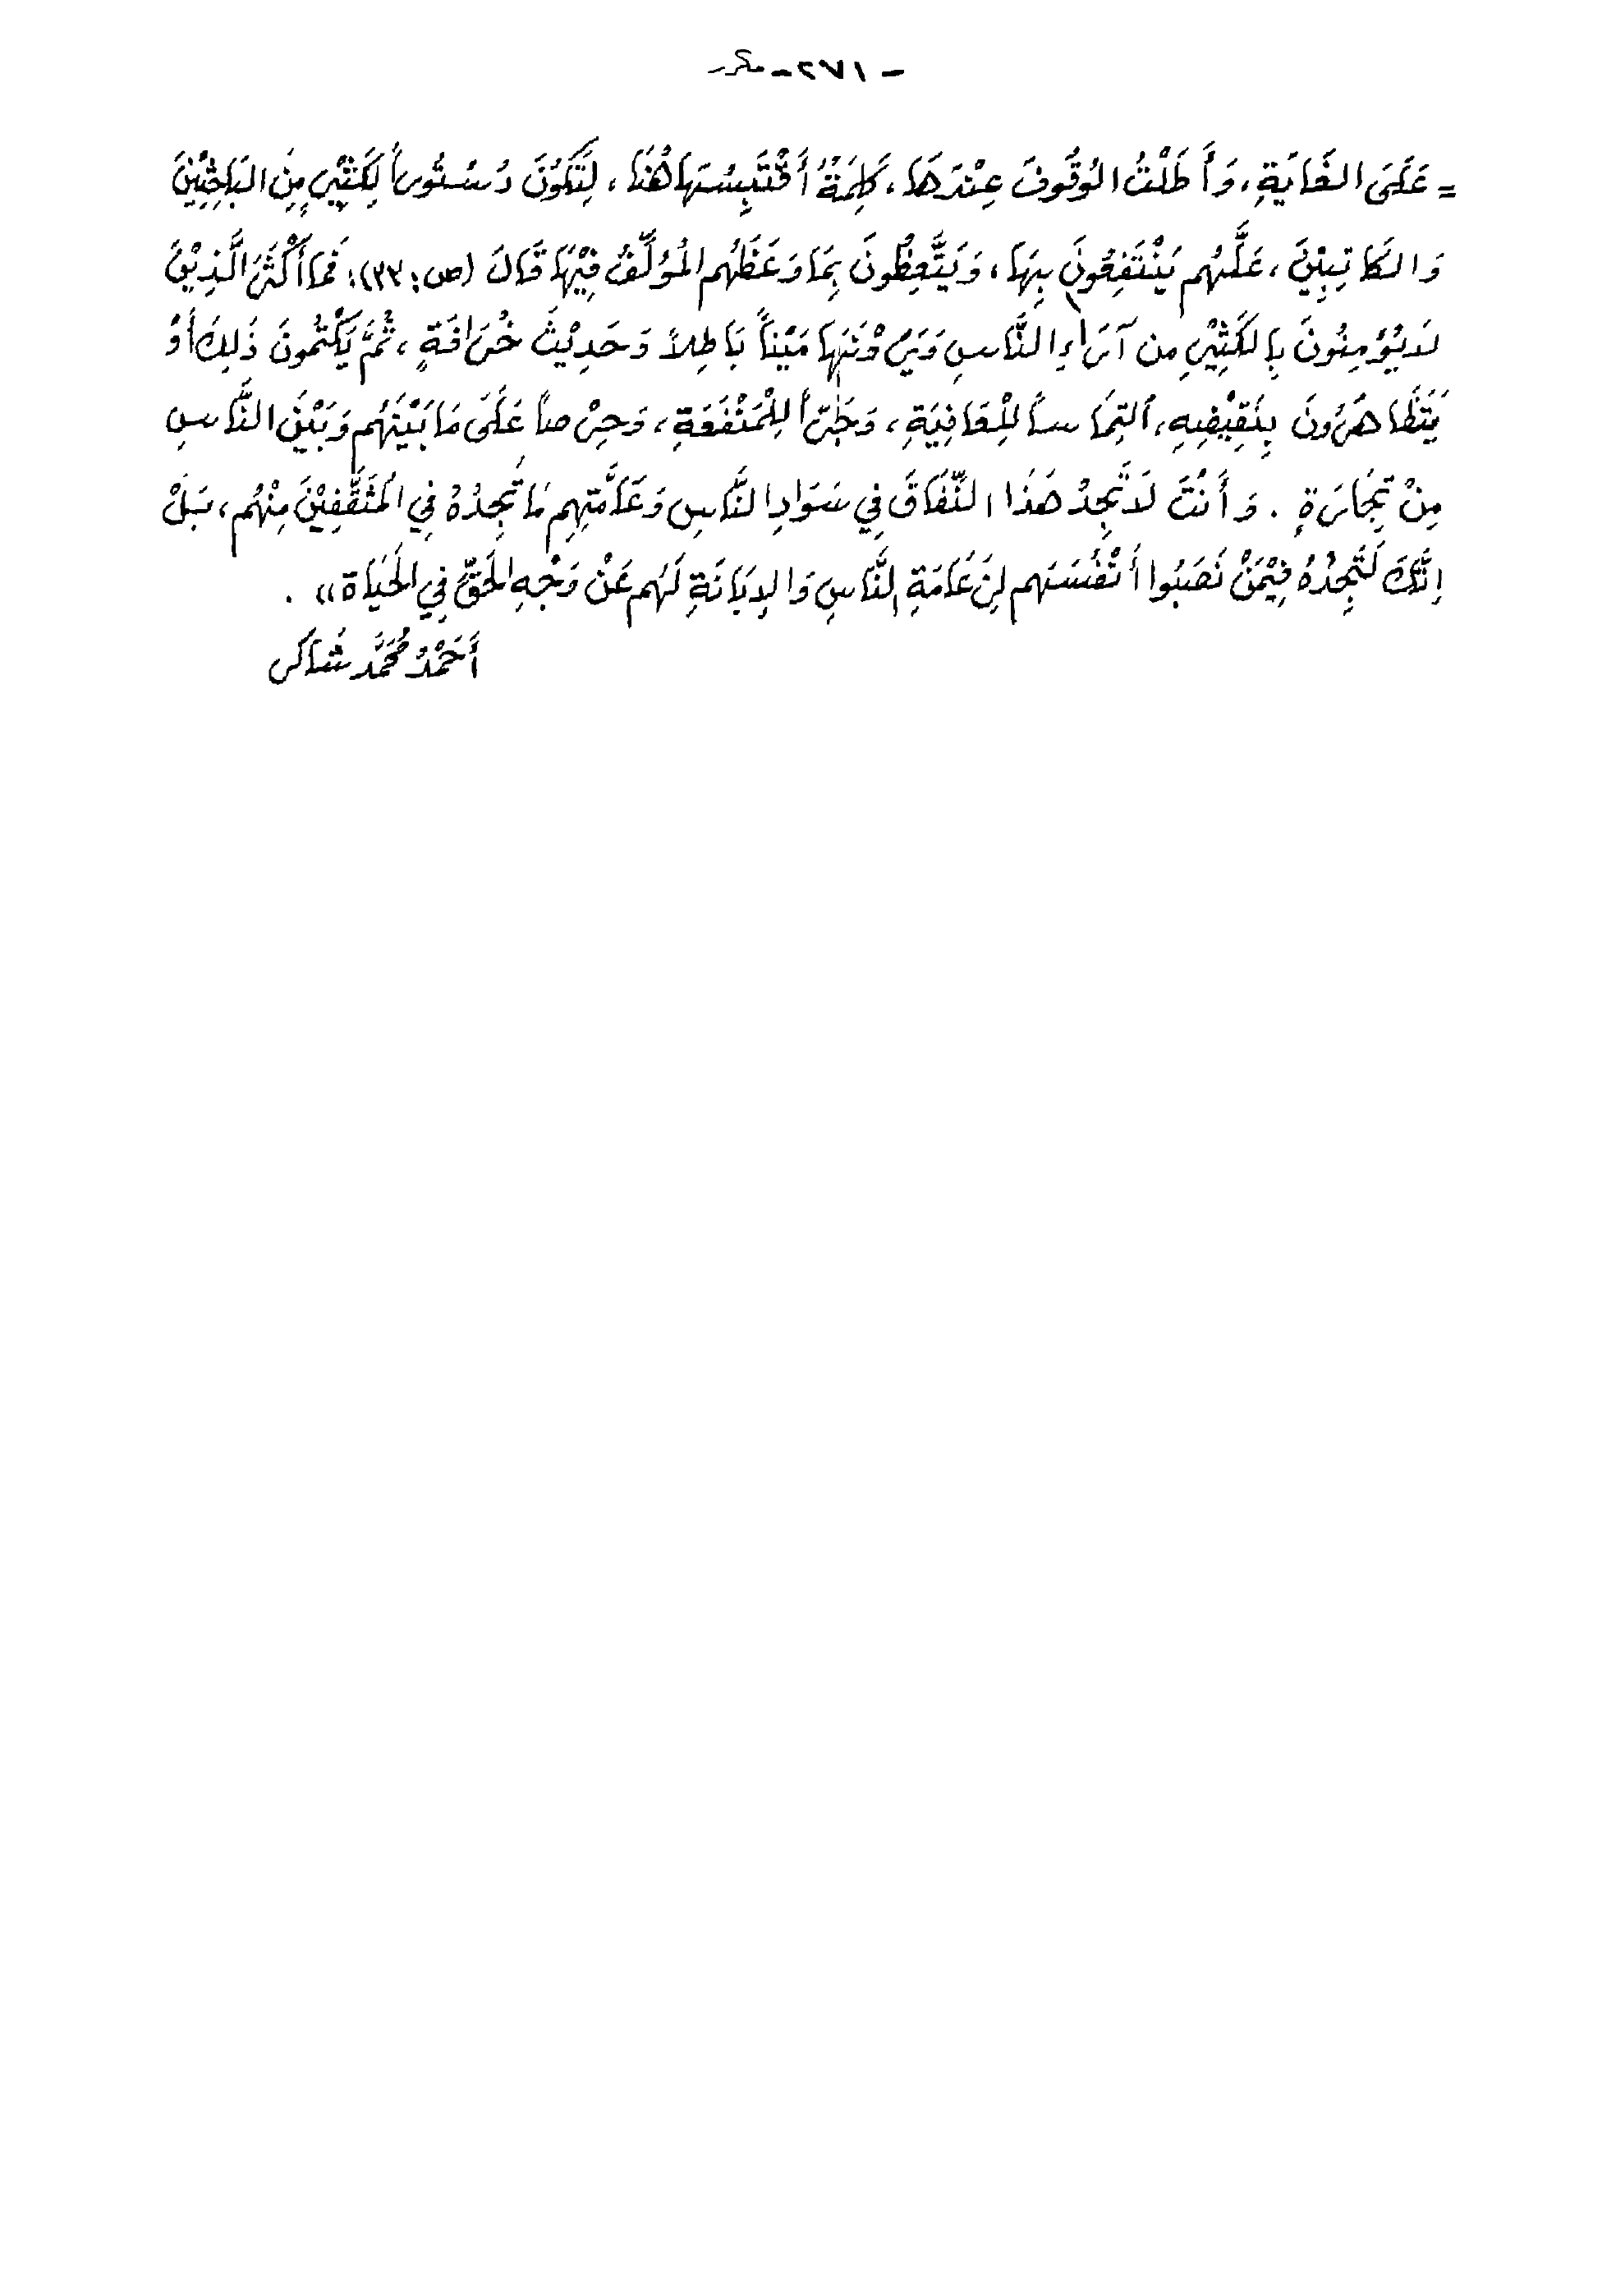 - ١٧٢ - مكرر
= عَلَى الغَايَةِ، وَأَطَلْتُ الوُقُوفَ عِنْدَهَا، كَلِمَةٌ أَقْتَبِسُهَا هُنَا، لِتَكُوْنَ دُسْتُوراً لِكَثِيْرٍ مِنَ البَاحِثِيْنَ
وَالكَاتِبِيْنَ، عَلَّهُم يَنْتَفِعُونَ بِهَا، وَيَتَّعِظُونَ بِمَا وَعَظَهُم المُؤَلِّفُ فِيْهَا قَالَ (ص: ٣٣): فَمَا أَكْثَرَ الَّذِيْنَ
لَا يُؤمِنُونَ بِالكَثِيْرِ مِن آرَاءِ النَّاسِ وَيَرَوْنَهَا مَيْناً بَاطِلاً وَحَدِيْثَ خُرَافَةٍ، ثُمَّ يَكْتُمُونَ ذَلِكَ أَوْ
يَتَظَاهَرُونَ بِنَقِيْضِهِ، التِمَاساً لِلْعَافِيَةِ، وَجَرّاً لِلْمَنْفَعَةِ، وَحِرْصاً عَلَى مَا بَيْنَهُم وَبَيْنَ النَّاسِ
مِنْ تِجَارَةٍ. وَأَنْتَ لَا تَجِدُ هَذَا النِّفَاقَ فِي سَوَادِ النَّاسِ وَعَامَّتِهِم مَا تَجِدُهُ فِي المُثَقَّفِيْنَ مِنْهُم، بَلْ
إِنَّكَ لَتَجِدُهُ فِيْمَنْ نَصَبُوا أَنْفُسَهُم لِنَ عَامَةِ النَّاسِ وَالإِبَانَةِ لَهُم عَنْ وَجْهِ الحَقِّ فِي الحَيَاة)).
أَحْمَدُ مُحَمَّد شَاكر